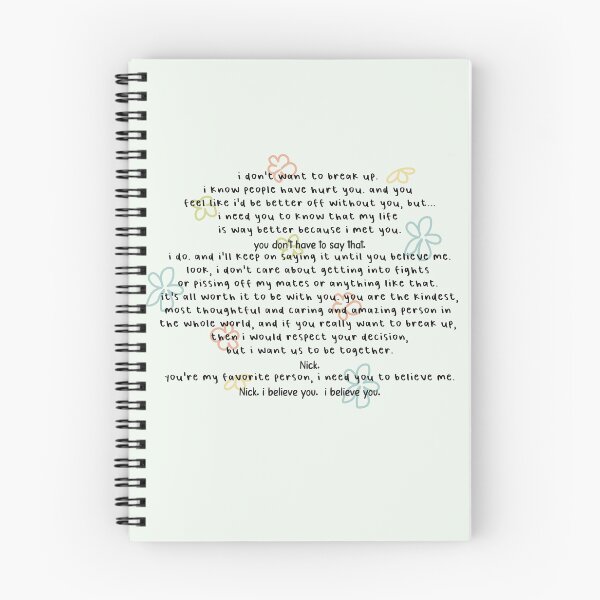 i don't want to break up.
i know people have hurt you. and you
feel like i'd be better off without you, but...
i need you to know that my life
is way better because i met you.
you don't have to say that.
i do. and i'll keep on saying it until you believe me.
look, i don't care about getting into fights
or pissing off my mates or anything like that.
it's all worth it to be with you. you are the kindest,
most thoughtful and caring and amazing person in
the whole world, and if you really want to break up,
then i would respect your decision,
but i want us to be together.
Nick.
you're my favorite person, i need you to believe me.
Nick. i believe you. i believe you.